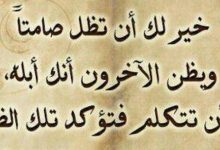 خير لك أن تظل صامتاً
ويظن الآخرون أنك أبله،
تتكلم فتؤكد تلك